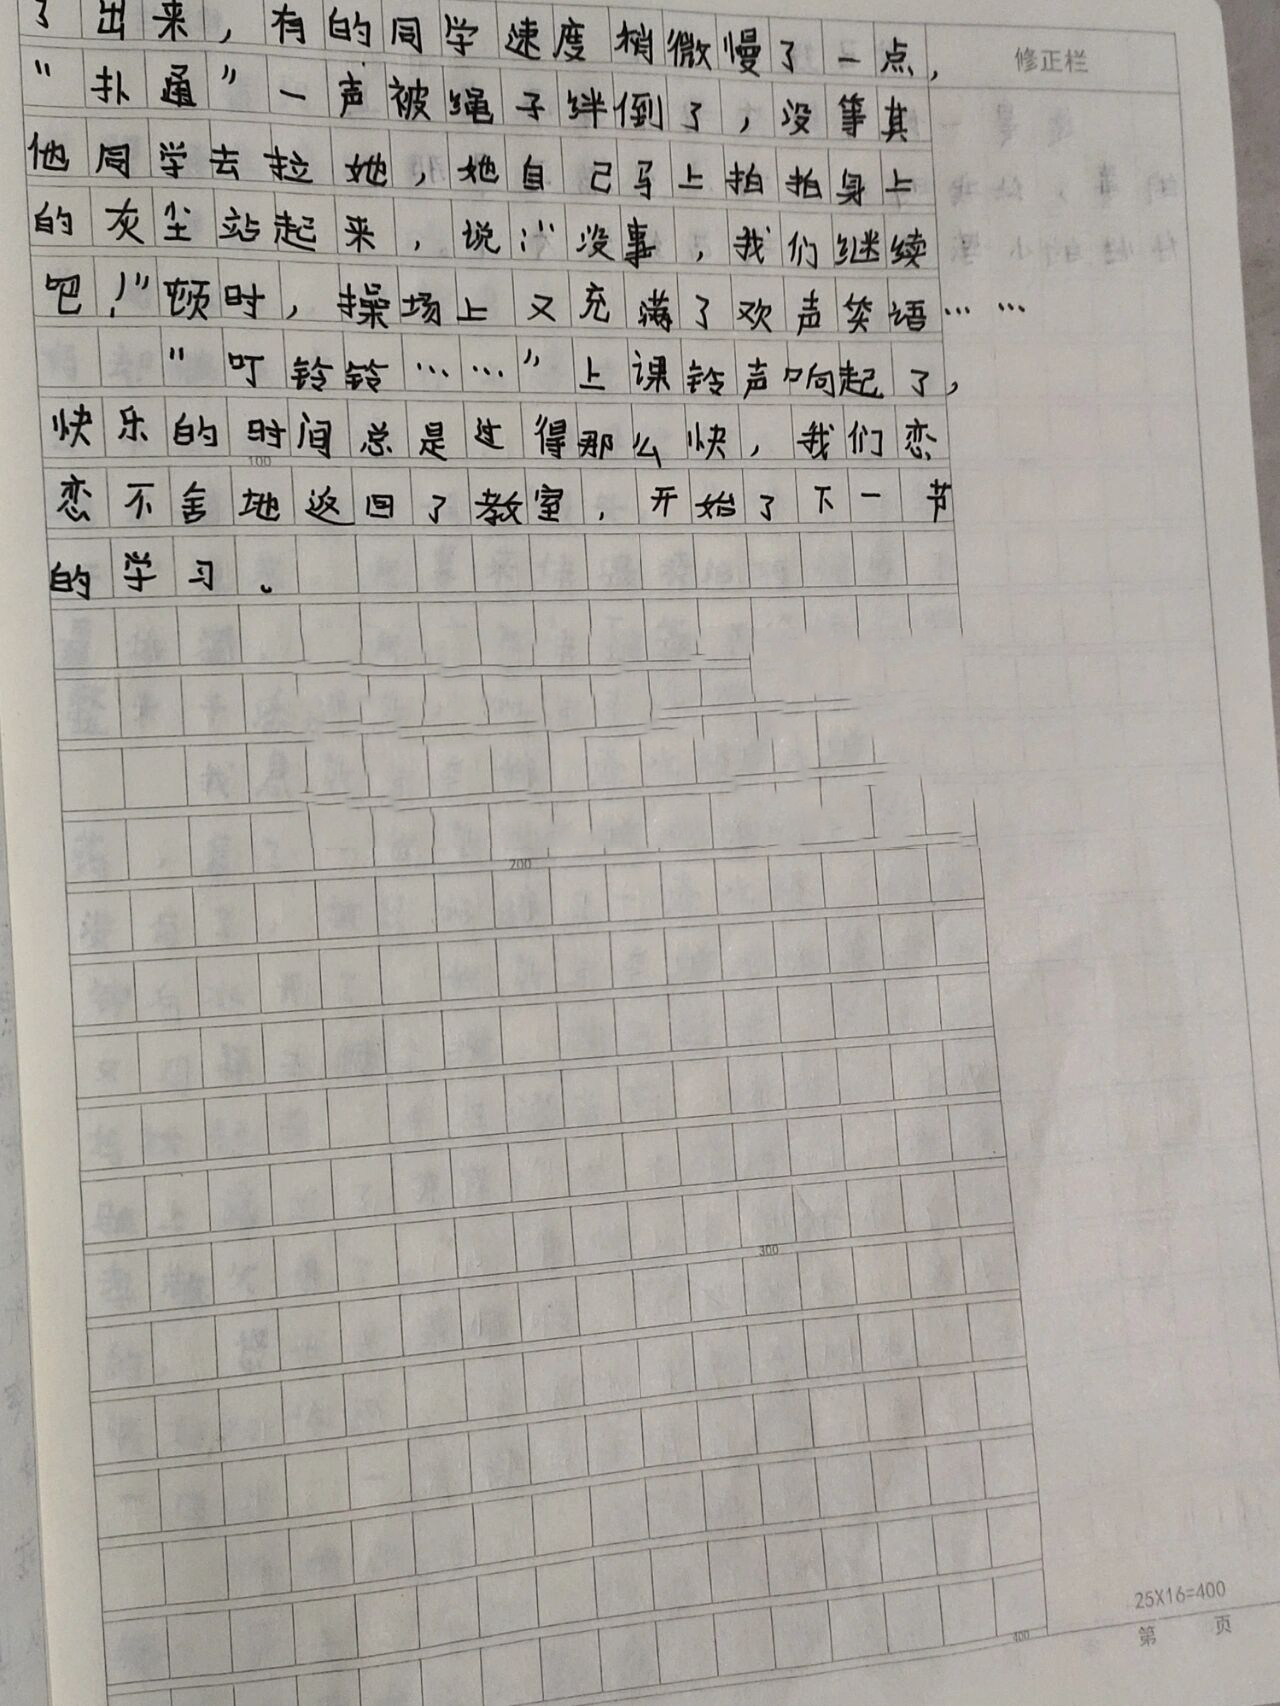 了出来，有的同学速度稍微慢了一点，
修正栏
“扑通”一声被绳子绊倒了，没等其
他同学去拉她，她自己马上拍拍身上
的灰尘站起来，说：“没事，我们继续
吧！”顿时，操场上又充满了欢声笑语……
“叮铃铃……”上课铃声响起了，
快乐的时间总是过得那么快，我们恋
100
恋不舍地返回了教室，开始了下一节
的学习。
200
300
25X16=400
400
第 页